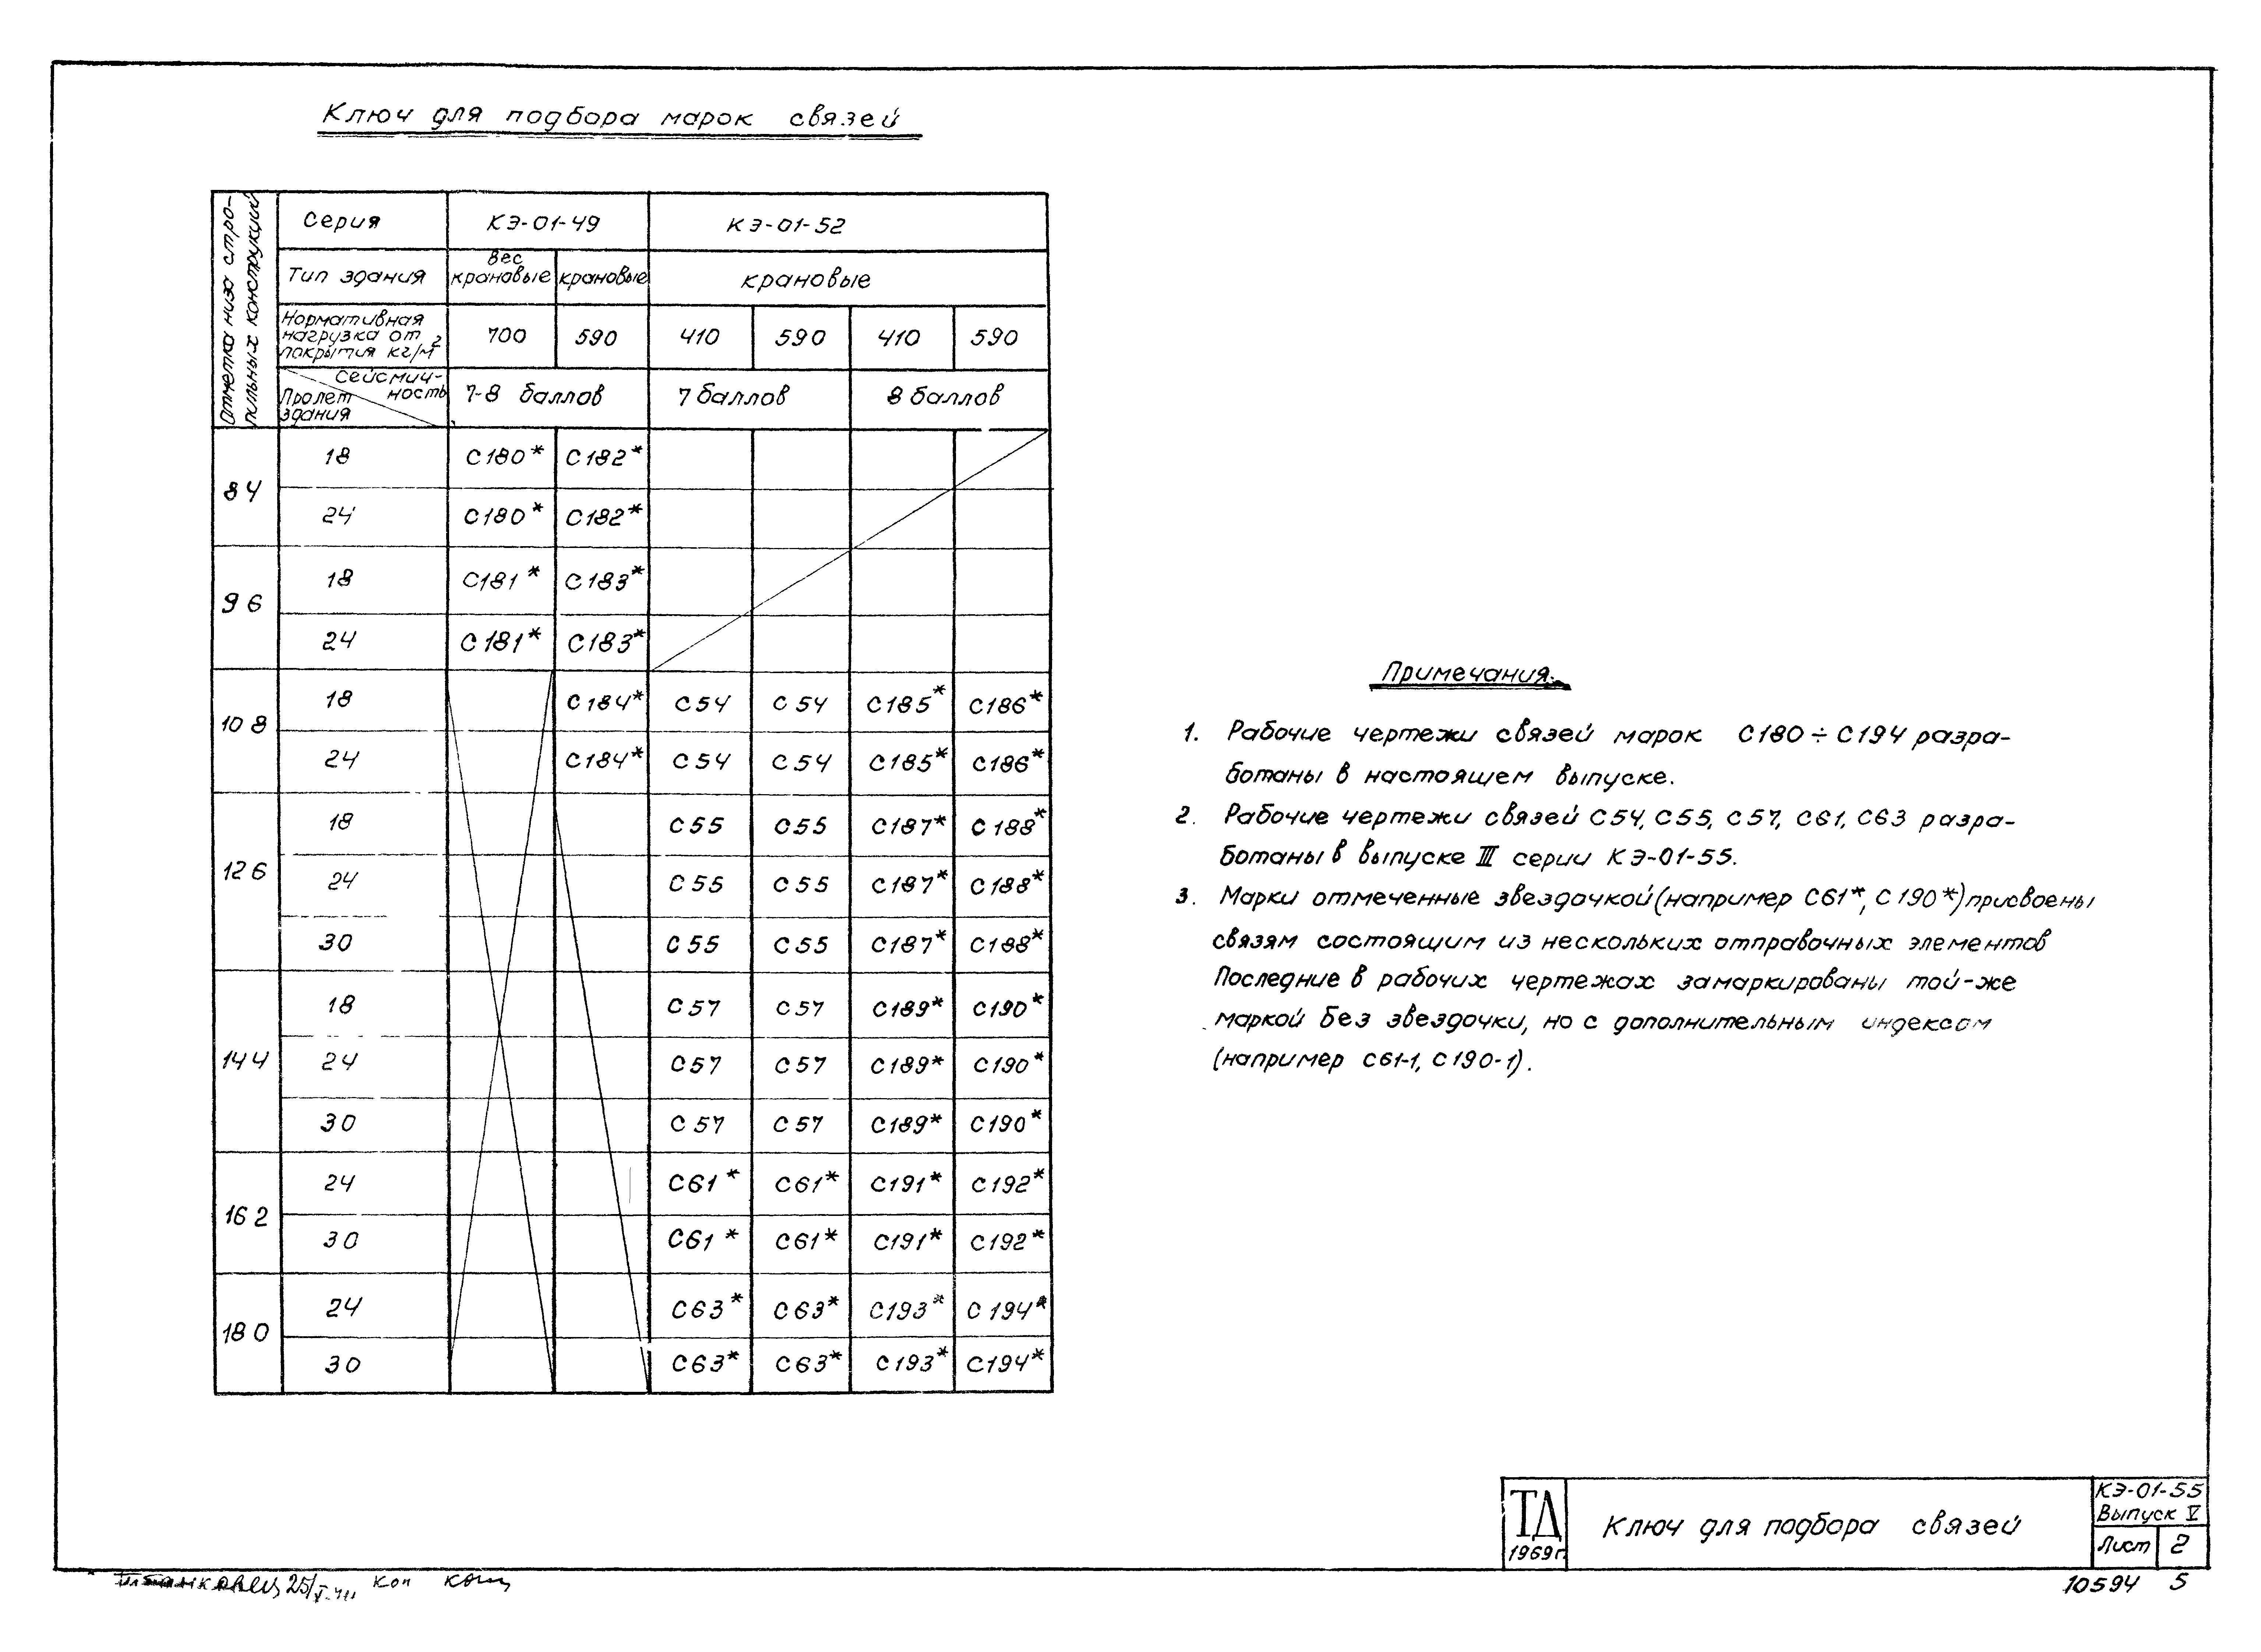 Ключ для подбора марок связей
Отметка низа стро-
пильных конструкций
Серия КЭ-01-49 КЭ-01-52
Тип здания Бес крановые крановые крановые
Нормативная
нагрузка от
покрытия кг/м² 700 590 410 590 410 590
Сейсмич-
ность
Пролет
здания 7-8 баллов 7 баллов 8 баллов
8 4
18 С180* С182*
24 С180* С182*
9 6
18 С181* С183*
24 С181* С183*
10 8
18 С184* С54 С54 С185* С186*
24 С184* С54 С54 С185* С186*
12 6
18 С55 С55 С187* С188*
24 С55 С55 С187* С188*
30 С55 С55 С187* С188*
14 4
18 С57 С57 С189* С190*
24 С57 С57 С189* С190*
30 С57 С57 С189* С190*
16 2
24 С61* С61* С191* С192*
30 С61* С61* С191* С192*
18 0
24 С63* С63* С193* С194*
30 С63* С63* С193* С194*
Примечания:
1. Рабочие чертежи связей марок С180÷С194 разра-
ботаны в настоящем выпуске.
2. Рабочие чертежи связей С54, С55, С57, С61, С63 разра-
ботаны в выпуске III серии КЭ-01-55.
3. Марки отмеченные звездочкой (например С61*, С190*) присвоены
связям состоящим из нескольких отправочных элементов
Последние в рабочих чертежах замаркированы той-же
маркой без звездочки, но с дополнительным индексом
(например С61-1, С190-1).
ТД
1969г.
Ключ для подбора связей
КЭ-01-55
Выпуск V
Лист 2
10594 5
коп